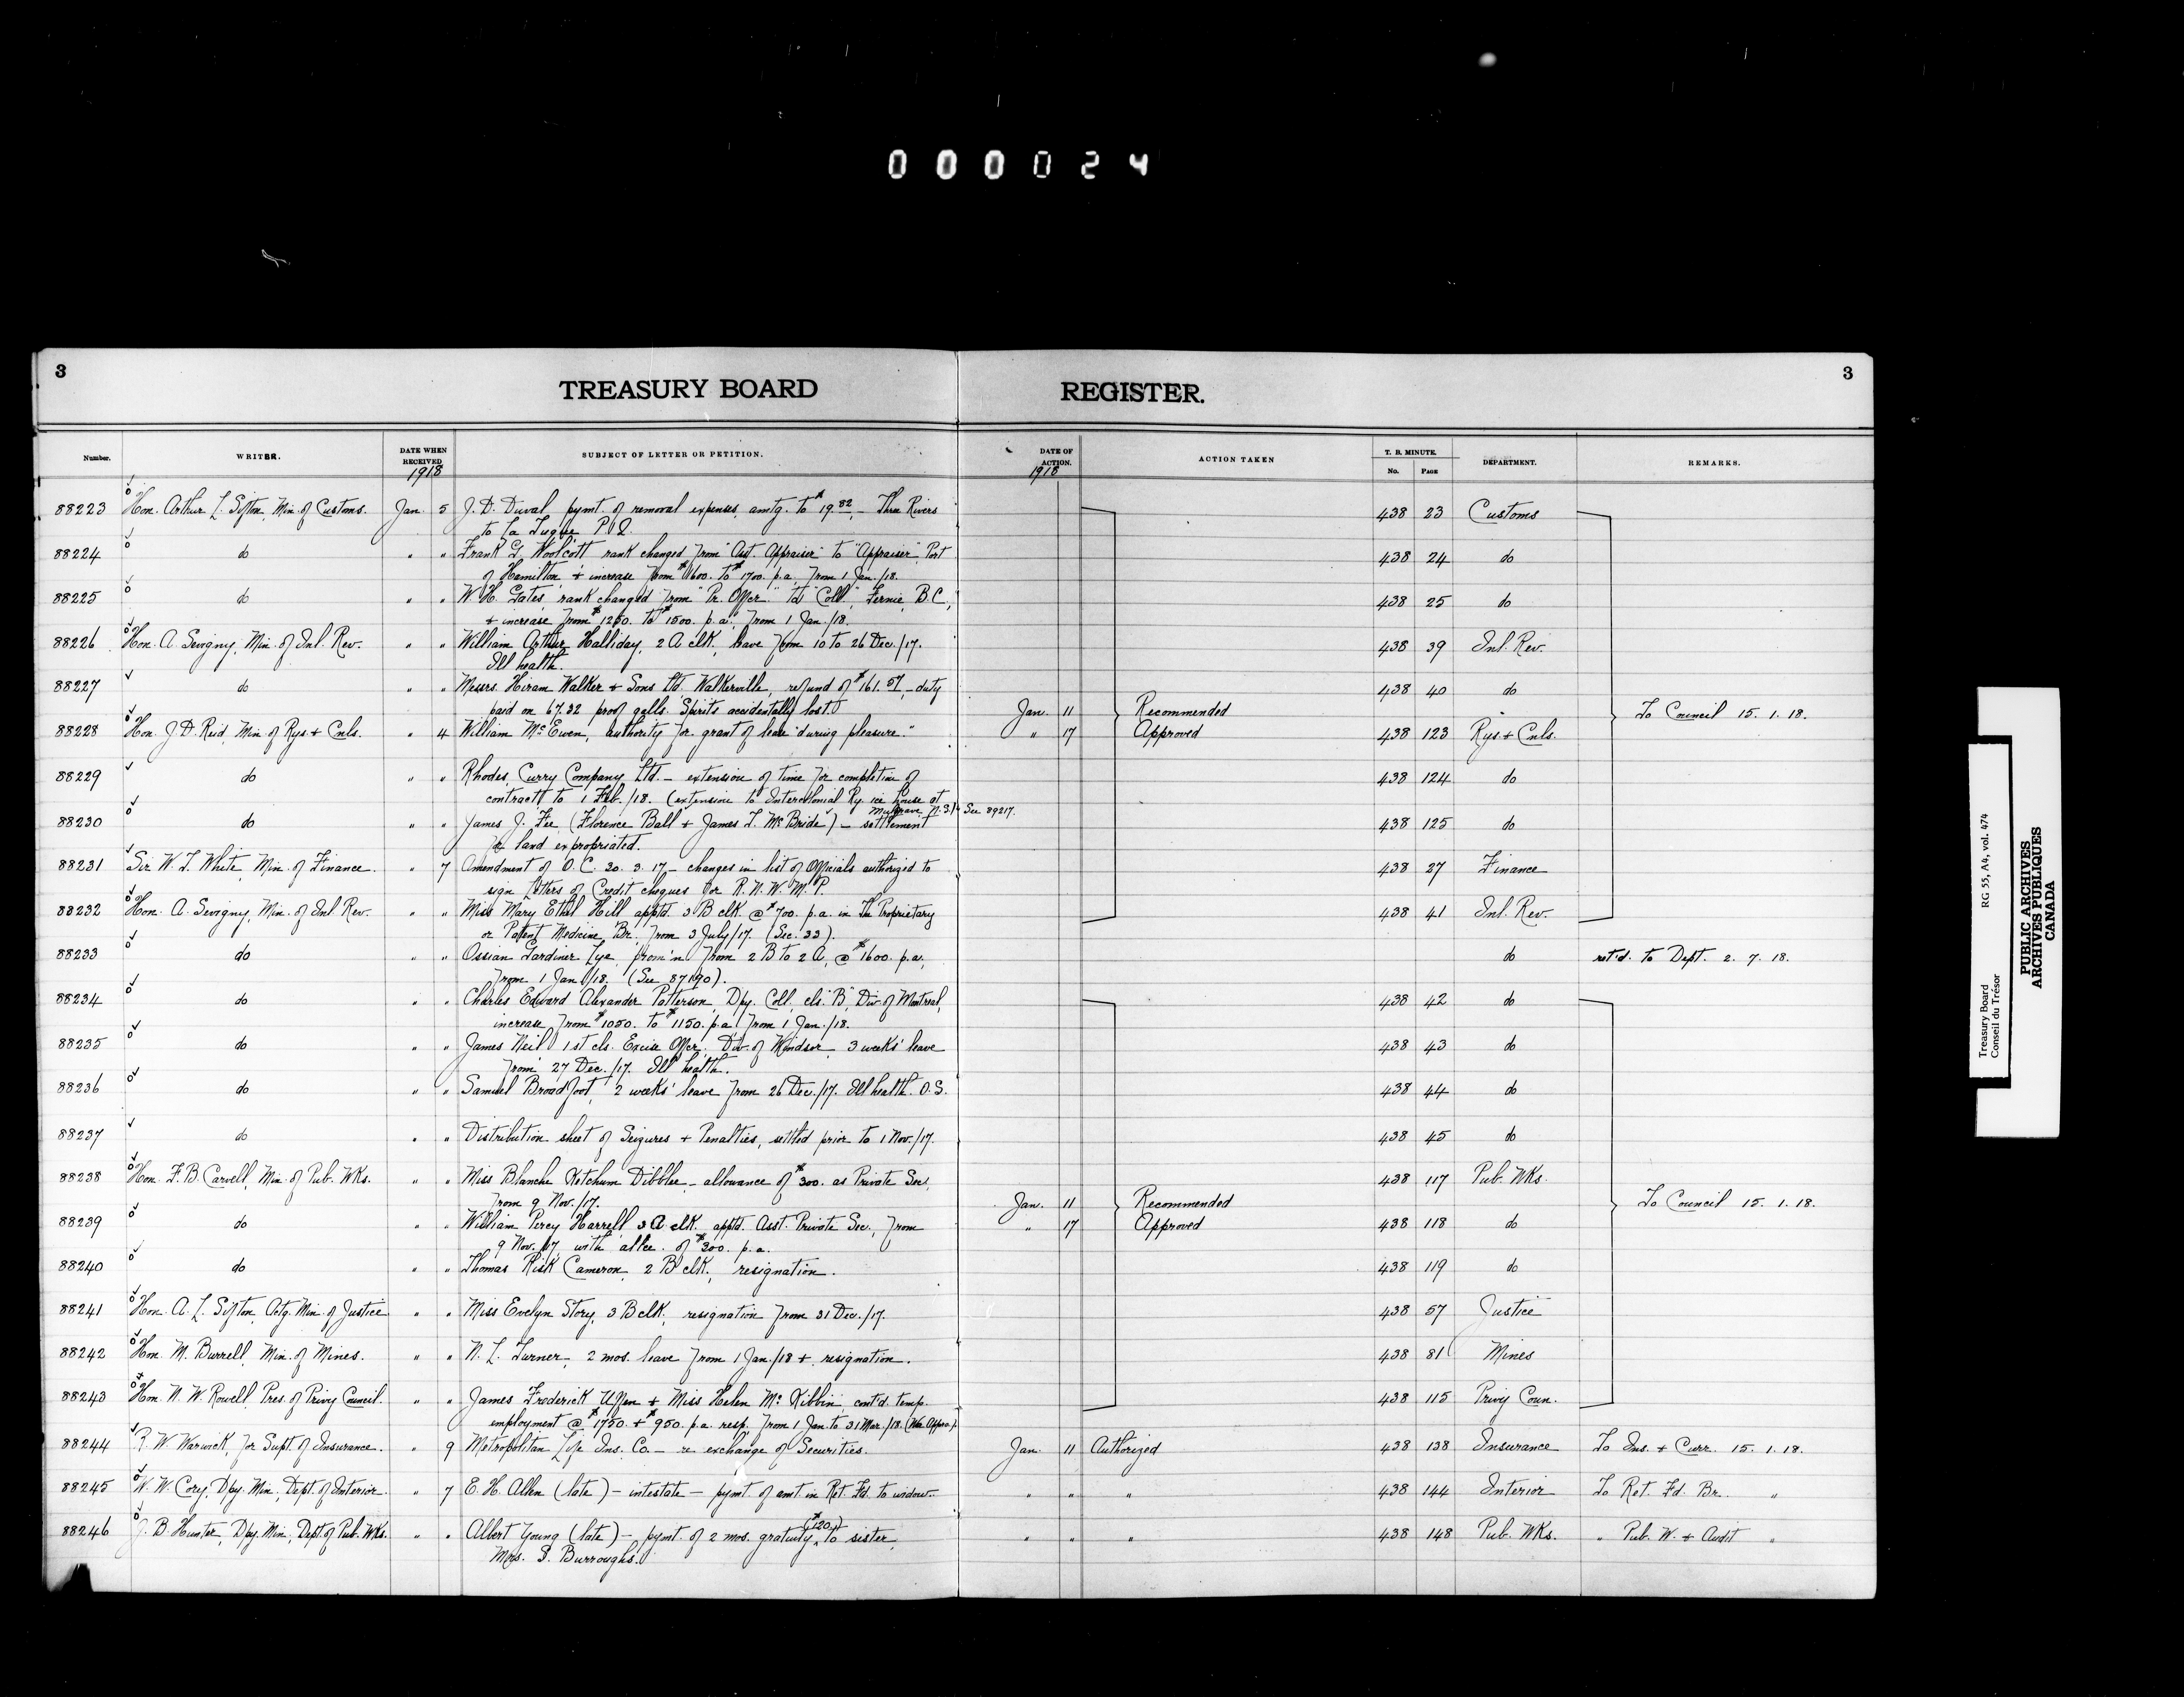 000024
3
TREASURY BOARD REGISTER.
3
Number. WRITER. DATE WHEN RECEIVED 1918 SUBJECT OF LETTER OR PETITION. DATE OF ACTION. 1918 ACTION TAKEN T. B. MINUTE. No. PAGE DEPARTMENT. REMARKS.
88223 Hon. Arthur L. Sifton, Min. of Customs. Jan. 5 J. D. Duval pymt. of removal expenses, amtg. to $19.82, - Three Rivers 438 23 Customs
to La Tuque, P.Q.
88224 do " " Frank G. Woolcott rank changed from "Asst. Appraiser" to "Appraiser", Port 438 24 do
of Hamilton, + increase from $1600. to $1700. p.a. from 1 Jan./18.
88225 do " " W. H. Gates, rank changed from "Pr. Offcr." to "Coll.", Fernie, B.C., 438 25 do
+ increase from $1200. to $1500. p.a., from 1 Jan./18.
88226 Hon. A. Sevigny, Min. of Inl. Rev. " " William Arthur Halliday, 2 A clk., leave from 10 to 26 Dec./17. 438 39 Inl. Rev.
Ill health.
88227 do " " Messrs. Hiram Walker + Sons Ltd. Walkerville, refund of $161.57, - duty 438 40 do
paid on 67.32 proof galls. Spirits accidentally lost. Jan. 11 Recommended To Council 15. 1. 18.
88228 Hon. J. D. Reid, Min. of Rys. + Cnls. " 4 William McEwen, authority for grant of lease "during pleasure." " 17 Approved 438 123 Rys. + Cnls.
88229 do " " Rhodes, Curry Company, Ltd. - extension of time for completion of 438 124 do
contract to 1 Feb./18. (extension to Intercolonial Ry. ice house at
Mulgrave, N.S.) See 89217.
88230 do " " James J. Fee (Florence Ball + James L. McBride) - settlement 438 125 do
for land expropriated.
88231 Sir W. T. White, Min. of Finance. " 7 Amendment of O.C. 20. 3. 17, - changes in list of Officials authorized to 438 27 Finance
sign Letters of Credit cheques for R.N.W.M.P.
88232 Hon. A. Sevigny, Min. of Inl. Rev. " " Miss Mary Ethel Hill apptd. 3 B clk. @ $700. p.a. in The Proprietary 438 41 Inl. Rev.
or Patent Medicine Br. from 3 July/17. (Sec. 33).
88233 do " " Ossian Gardiner Lye, prom'n from 2 B to 2 A, @ $1600. p.a., do ret'd. to Dept. 2. 7. 18.
from 1 Jan./18. (See 87190).
88234 do " " Charles Edward Alexander Patterson, Dpy. Coll. cls. "B", Div. of Montreal, 438 42 do
increase from $1050. to $1150. p.a. from 1 Jan./18.
88235 do " " James Neil 1st cls. Excise Offcr. Div. of Windsor, 3 weeks' leave 438 43 do
from 27 Dec./17. Ill health.
88236 do " " Samuel Broadfoot, 2 weeks' leave from 26 Dec./17. Ill health. O.S. 438 44 do
88237 do " " Distribution sheet of Seizures + Penalties, settled prior to 1 Nov./17. 438 45 do
88238 Hon. F. B. Carvell, Min. of Pub. Wks. " " Miss Blanche Ketchum Dibblee - allowance of $300. as Private Sec., 438 117 Pub. Wks.
from 9 Nov./17. Jan. 11 Recommended To Council 15. 1. 18.
88239 do " " William Percy Harrell, 3 A clk. apptd. Asst. Private Sec., from " 17 Approved 438 118 do
9 Nov./17, with allce. of $300. p.a.
88240 do " " Thomas Risk Cameron, 2 B clk., resignation. 438 119 do
88241 Hon. A. L. Sifton, Actg. Min. of Justice " " Miss Evelyn Story, 3 B clk., resignation from 31 Dec./17. 438 57 Justice
88242 Hon. M. Burrell, Min. of Mines. " " N. L. Turner, 2 mos. leave from 1 Jan./18 + resignation. 438 81 Mines
88243 Hon. N. W. Rowell, Pres. of Privy Council. " " James Frederick Uffen + Miss Helen McKibbin, cont'd. temp. 438 115 Privy Coun.
employment @ $1750. + $950. p.a. resp. from 1 Jan. to 31 Mar./18. (War Appro.).
88244 R. W. Warwick, for Supt. of Insurance. " 9 Metropolitan Life Ins. Co. - re exchange of Securities. Jan. 11 Authorized 438 138 Insurance To Ins. + Curr. 15. 1. 18.
88245 W. W. Cory, Dpy. Min., Dept. of Interior. " 7 E. H. Allen (late) - intestate - pymt. of amt. in Ret. Fd. to widow. " " " 438 144 Interior To Ret. Fd. Br. "
88246 J. B. Hunter, Dpy. Min., Dept. of Pub. Wks. " " Albert Young (late) - pymt. of 2 mos. gratuity ($120.) to sister, " " " 438 148 Pub. Wks. " Pub. W. + Audit "
Mrs. S. Burroughs.
Treasury Board RG 55, A4, vol. 474
Conseil du Trésor
PUBLIC ARCHIVES
ARCHIVES PUBLIQUES
CANADA